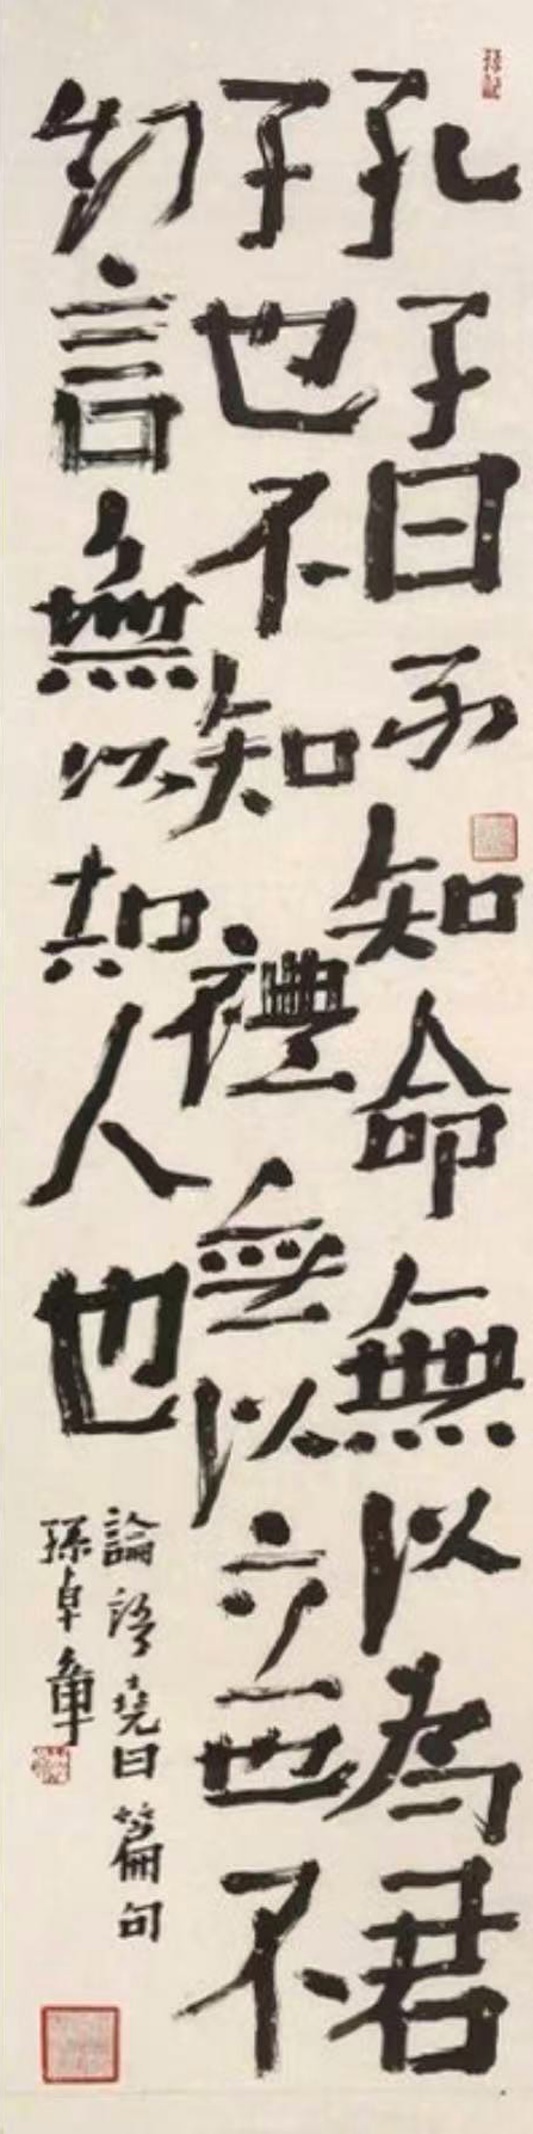 孔子曰不知命無以為君
子也不知禮無以立也不
知言無以知人也
論語堯曰篇句
孫卓章